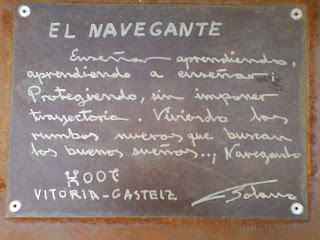 EL NAVEGANTE
Enseñar aprendiendo,
aprendiendo a enseñar;
Protegiendo, sin imponer
trayectoria. Viviendo los
rumbos nuevos que buscan
los buenos sueños..; Navegando
VITORIA-GASTEIZ